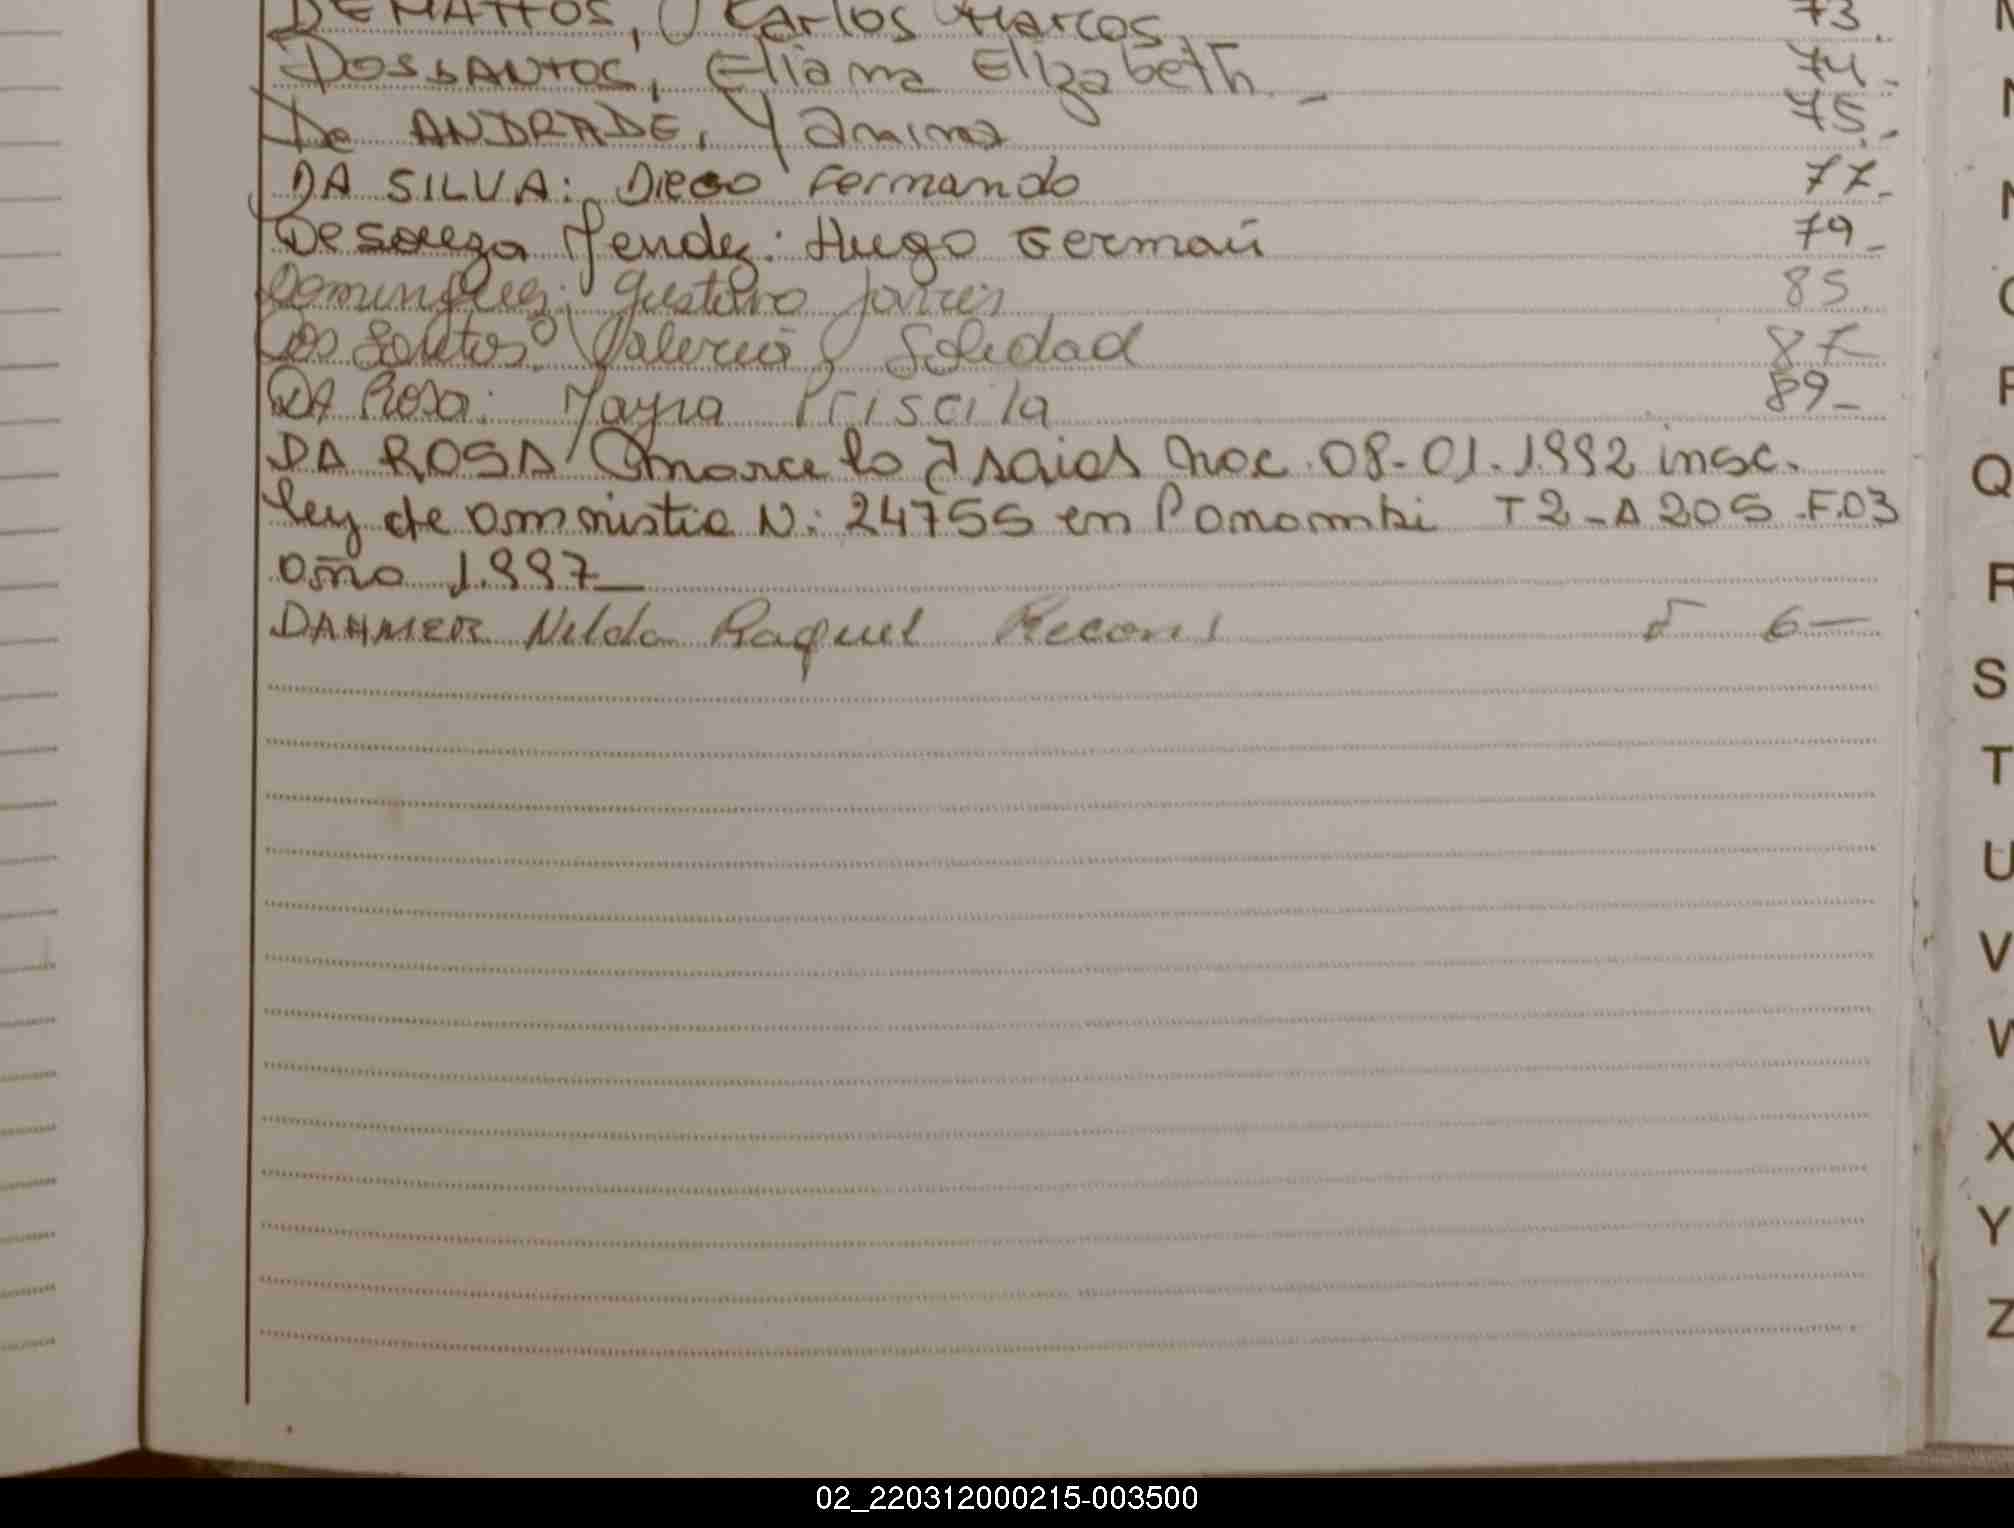 DEMATTOS, Carlos Marcos 73.
DOSSANTOS, Eliana Elizabeth._ 74.-
De ANDRADE, Yanina 75.-
DA SILVA: Diego Fernando 77.-
De souza Mendez: Hugo Germań 79_
Dominguez; Gustavo Javier 85
Dos Santos: Valeria, Soledad 87_
DA Rosa: Mayra Priscila 89_
DA ROSA marcelo Isaias nac. 08-01.1.992 insc.
ley de amnistia N: 24755 en Panambi T2_A205.F.03
año 1.997_
DAHMER Nilda Raquel 6—
M
N
N
O
P
Q
R
S
T
U
V
W
X
Y
Z
02_220312000215-003500